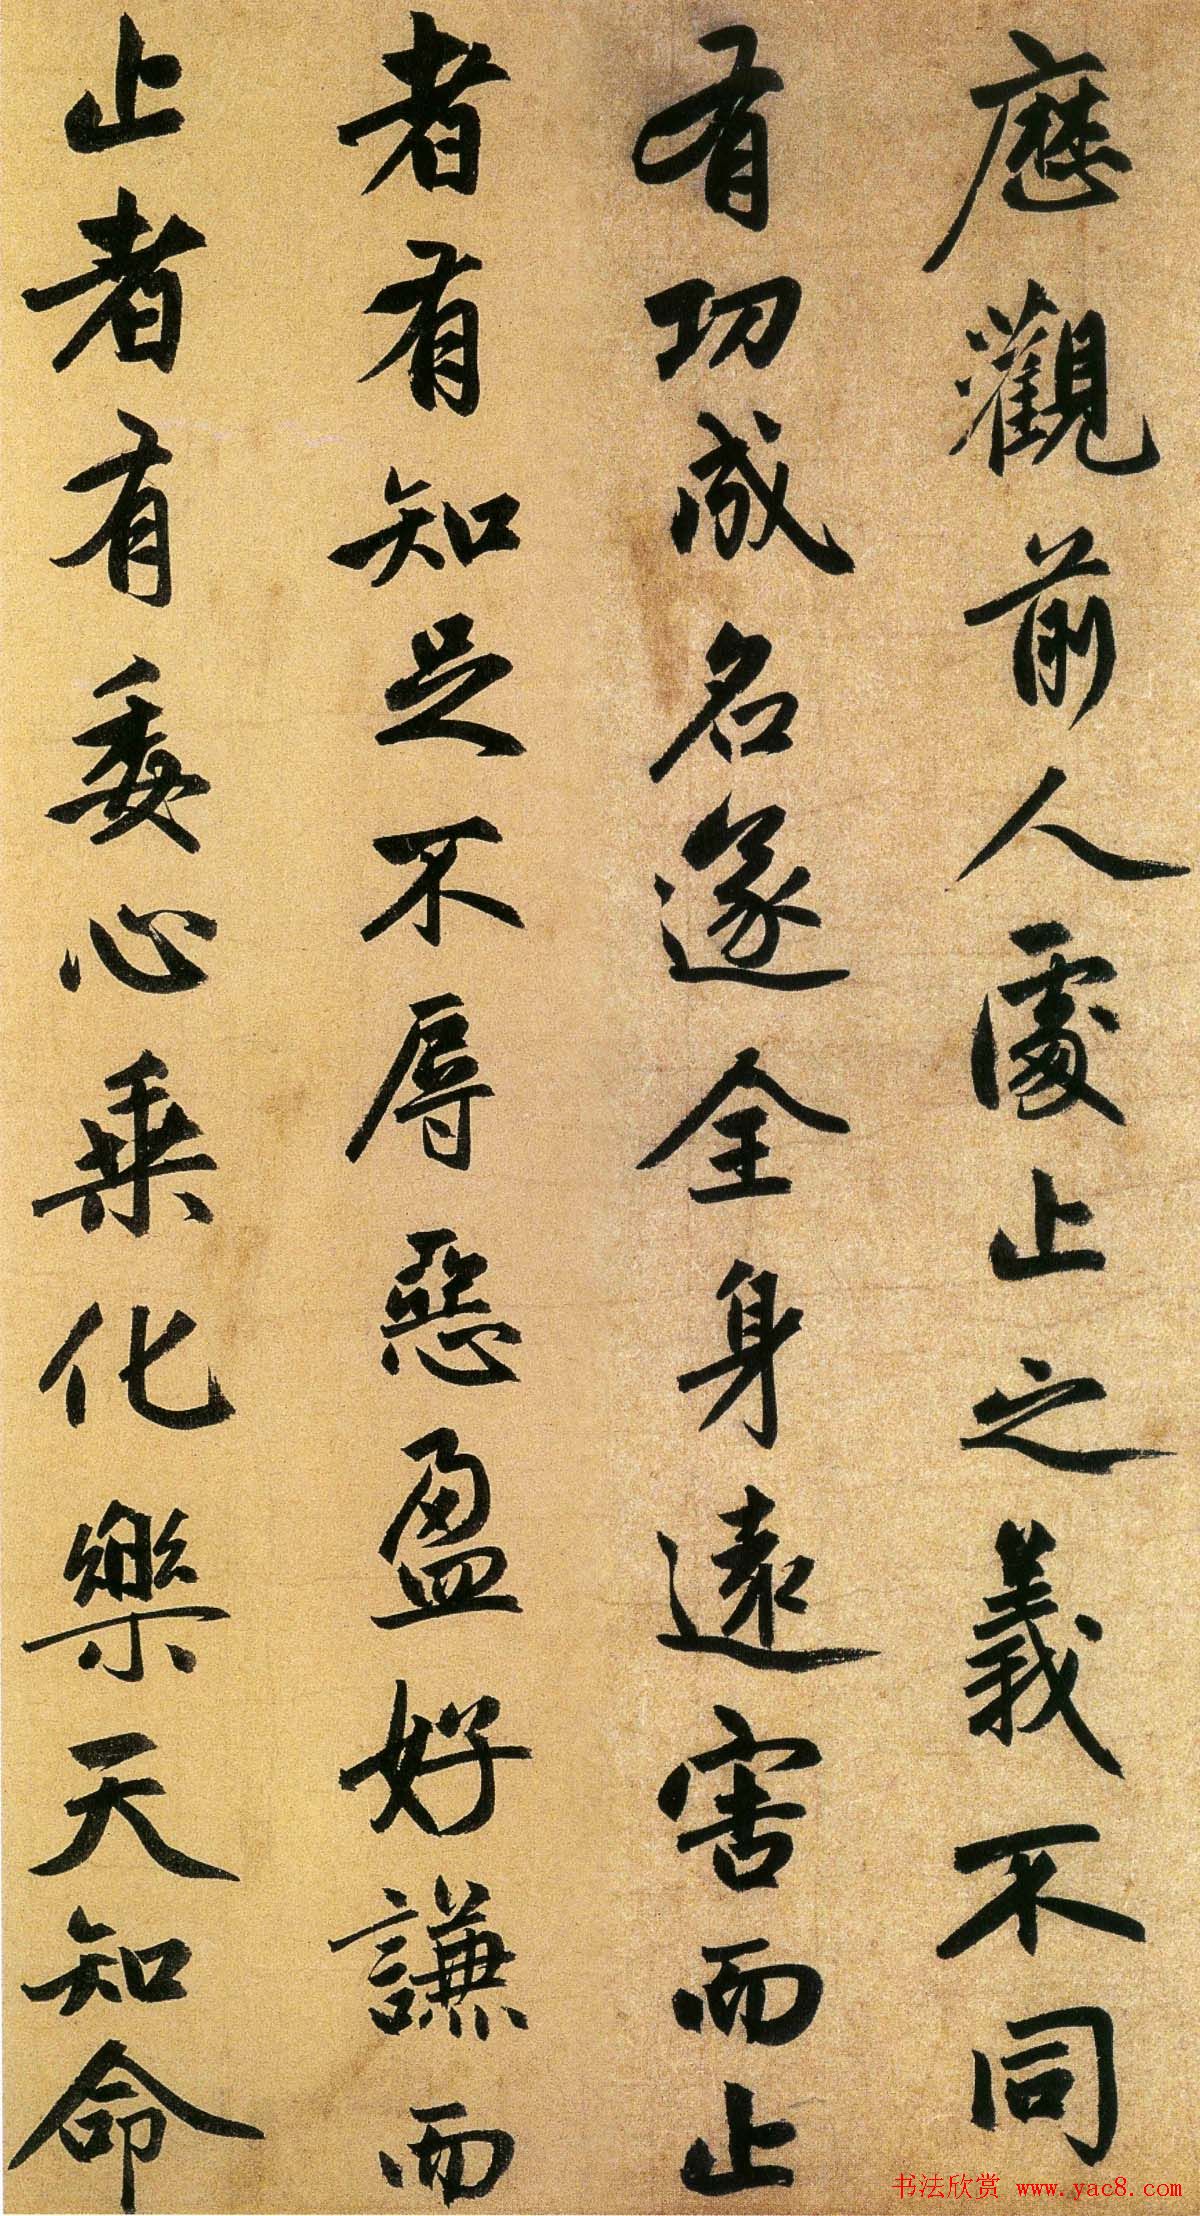 歷觀前人處止之義不同
有功成名遂全身遠害而止
者有知足不辱惡盈好謙而
止者有委心乘化樂天知命
书法欣赏 www.yac8.com